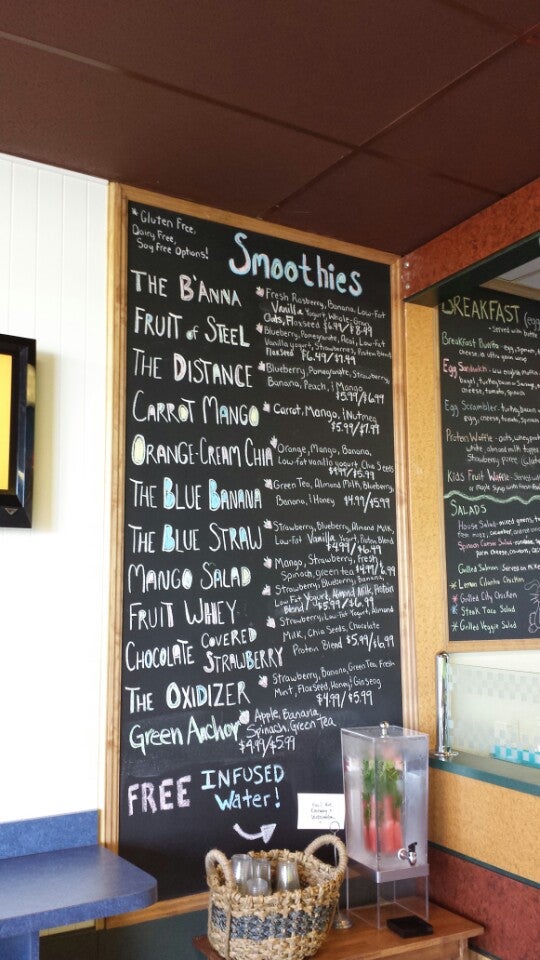 * Gluten Free,
Dairy Free,
Soy Free Options!
Smoothies
THE B'ANNA
Fresh Rasberry, Banana, Low-Fat
Vanilla Yogurt, Whole-Grain
Oats, Flaxseed $6.99/$8.49
FRUIT of STEEL
Blueberry, Pomegranate, Acai, Low-Fat
Vanilla yogurt, Strawberries, Protein Blend
Flaxseed $6.49/$7.99
THE DISTANCE
Blueberry, Pomegranate, Strawberry,
Banana, Peach, & Mango
$5.99/$6.99
CARROT MANGO
Carrot, Mango, & Nutmeg
$5.99/$7.99
ORANGE-CREAM CHIA
Orange, Mango, Banana,
Low-fat vanilla yogurt Chia Seeds
$4.99/$5.99
THE BLUE BANANA
Green Tea, Almond Milk, Blueberry,
Banana, & Honey $4.99/$5.99
THE BLUE STRAW
Strawberry, Blueberry, Almond Milk,
Low-Fat Vanilla Yogurt, Protein Blend
$4.99/$6.99
MANGO SALAD
Mango, Strawberry, Fresh
Spinach, green tea $4.99/$6.99
FRUIT WHEY
Strawberry, Blueberry, Banana,
Low-Fat Yogurt, Almond Milk, Protein
Blend $5.99/$6.99
CHOCOLATE COVERED
STRAWBERRY
Strawberry, Low-Fat Yogurt, Almond
Milk, Chia Seeds, Chocolate
Protein Blend $5.99/$6.99
THE OXIDIZER
Strawberry, Banana, Green Tea, Fresh
Mint, Flax Seed, Honey, & Ginseng
$4.99/$5.99
Green Anchor
Apple, Banana,
Spinach, Green Tea
$4.99/$5.99
FREE INFUSED
Water!
BREAKFAST
- Served with
Breakfast Burrito - egg, spinach,
Egg Sandwich
bagel, turkey bacon or Sausage,
cheese, tomato, spinach
Egg Scrambler - turkey, bacon
egg, cheese, tomato, spinach
Protein Waffle - oats, whey
white, almond milk topped
KIDS FRUIT Waffle - Served with
SALADS
House Salad - mixed greens,
Spinach Caesar Salad
Grilled Salmon - Served on
* Lemon Cilantro Chicken
* Grilled City Chicken
* Steak Tata Salad
* Grilled Veggie Salad